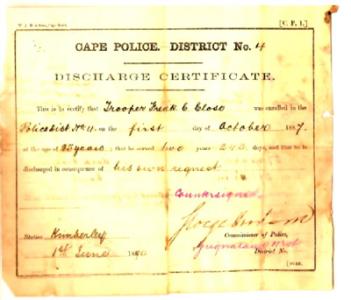 [C. P. 1.]
CAPE POLICE. DISTRICT No. 4
DISCHARGE CERTIFICATE.
This is to certify that Trooper Frank C Close was enrolled in the
Police Dist No 4. on the first day of October 1887.
at the age of 25 years; that he served two years 243 days, and that he is
discharged in consequence of his own request
Countersigned
Commissioner of Police,
Station Kimberley
Griqualand West
1st June 1890
District No.